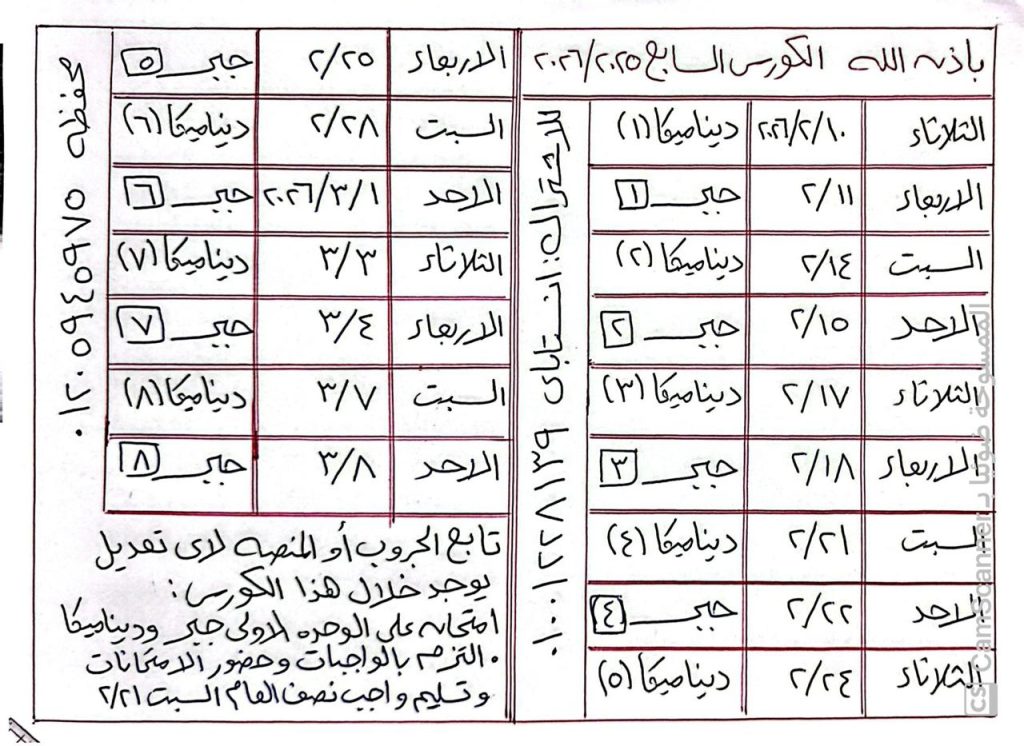 باذن الله الكورس السابع ٢٠٢٦/٢٠٢٥
الثلاثاء ٢٠٢٦/٢/١٠ ديناميكا (١)
الاربعاء ٢/١١ جبر ١
السبت ٢/١٤ ديناميكا (٢)
الاحد ٢/١٥ جبر ٢
الثلاثاء ٢/١٧ ديناميكا (٣)
الاربعاء ٢/١٨ جبر ٣
السبت ٢/٢١ ديناميكا (٤)
الاحد ٢/٢٢ جبر ٤
الثلاثاء ٢/٢٤ ديناميكا (٥)
للاشتراك: انستاباى ٠١٠٠١٢٢٨١٣٩
الاربعاء ٢/٢٥ جبر ٥
السبت ٢/٢٨ ديناميكا (٦)
الاحد ٢٠٢٦/٣/١ جبر ٦
الثلاثاء ٣/٣ ديناميكا (٧)
الاربعاء ٣/٤ جبر ٧
السبت ٣/٧ ديناميكا (٨)
الاحد ٣/٨ جبر ٨
محفظه ٠١٢٠٥٩٤٥٩٧٥
تابع الجروب أو المنصه لاى تعديل
يوجد خلال هذا الكورس:
امتحان على الوحده الاولى جبر وديناميكا
. التزم بالواجبات وحضور الامتحانات
وتسليم واجب نصف العام السبت ٢/٢١
الممسوحة ضوئيا بـ CamScanner
CS